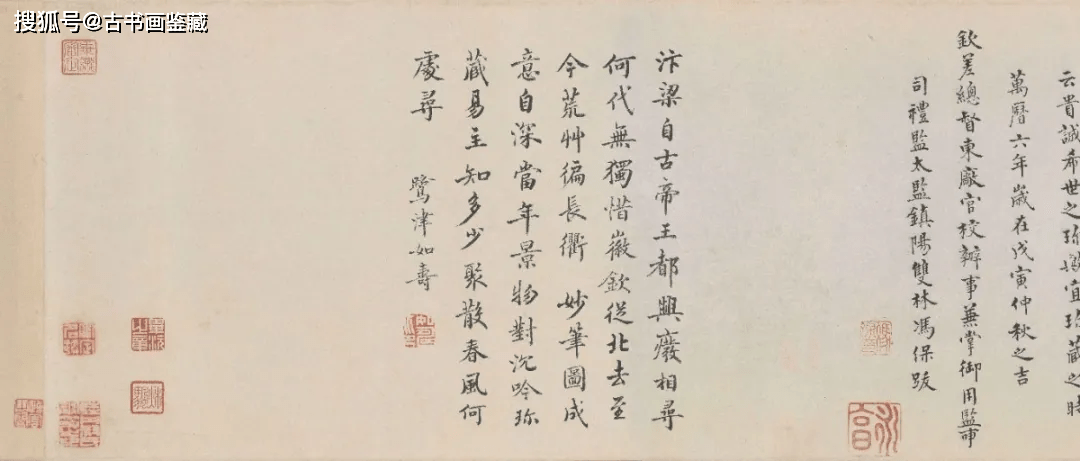 搜狐号@古书画鉴藏
云貴誠希世之珎歟宜珎藏之時
萬曆六年歲在戊寅仲秋之吉
欽差總督東廠官校辦事兼掌御用監事
司禮監太監鎮陽雙林馮保跋
汴梁自古帝王都興廢相尋
何代無獨惜徽欽從北去至
今荒艸徧長衢 妙筆圖成
意自深當年景物對沉吟珎
藏易主知多少聚散春風何
處尋 鷺津如壽